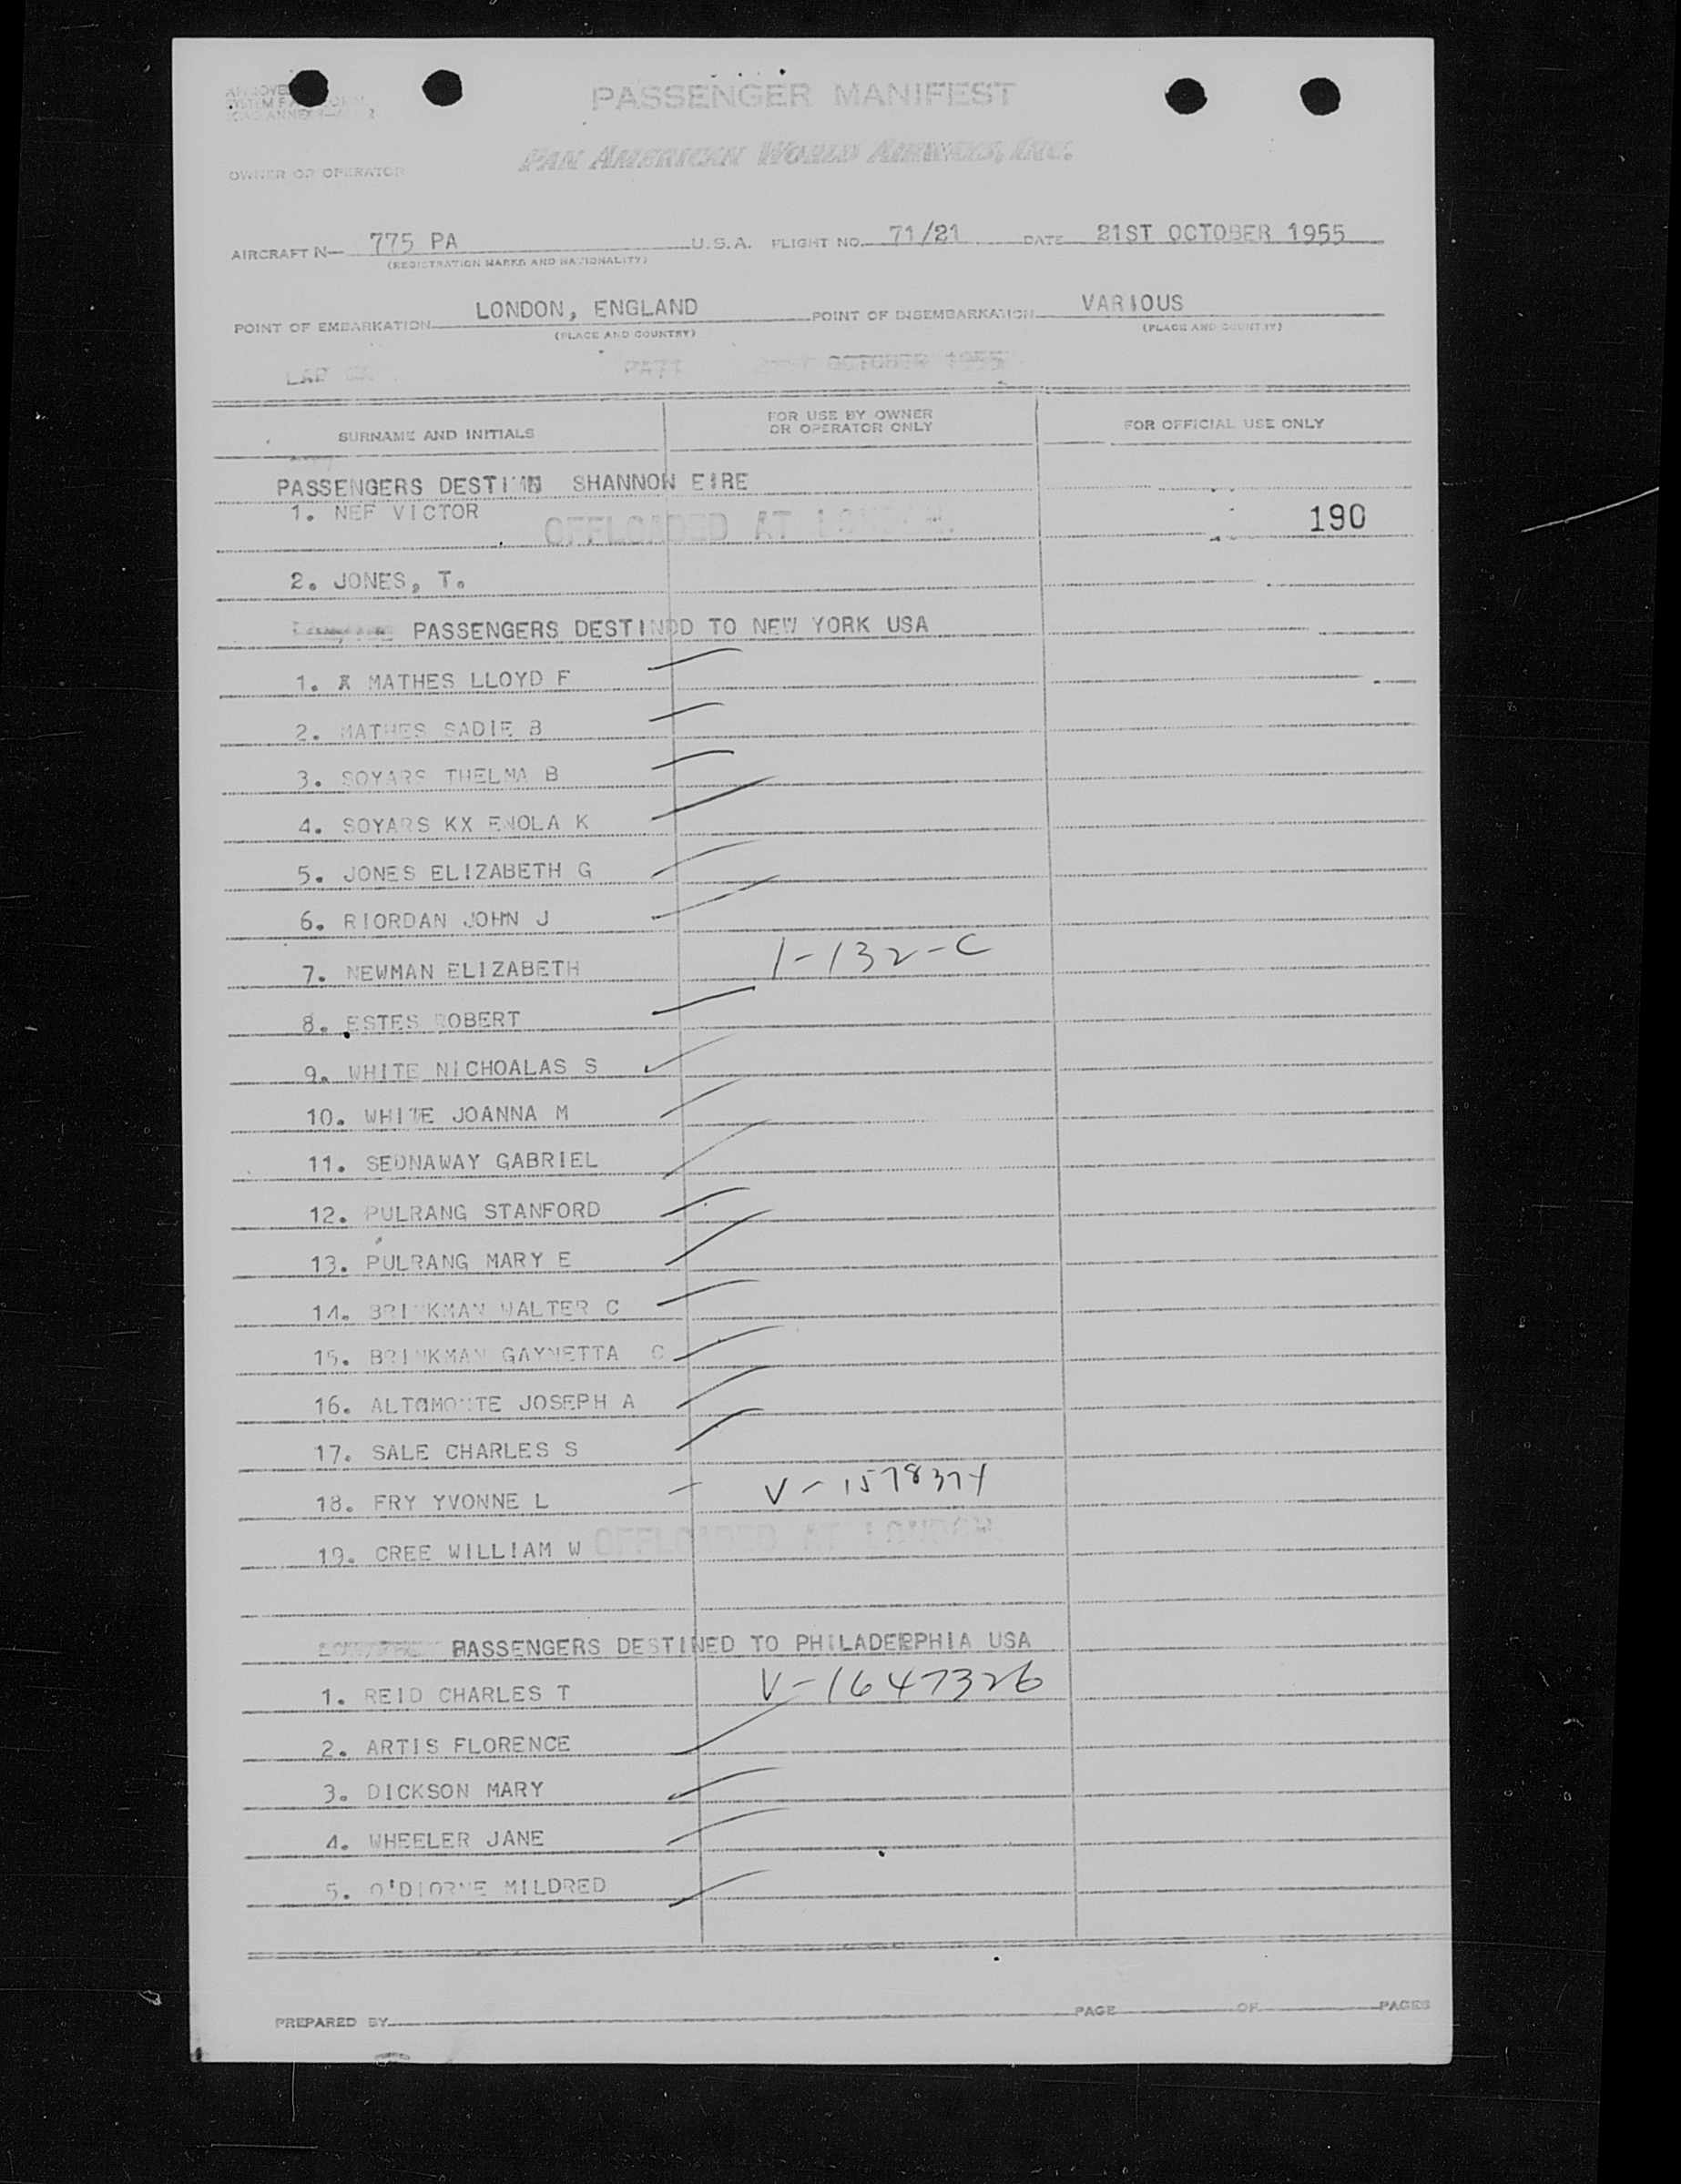 PASSENGER MANIFEST
OWNER OR OPERATOR PAN AMERICAN WORLD AIRWAYS, INC.
AIRCRAFT N— 775 PA U.S.A. FLIGHT NO. 71/21 DATE 21ST OCTOBER 1955
(REGISTRATION MARKS AND NATIONALITY)
POINT OF EMBARKATION LONDON, ENGLAND POINT OF DISEMBARKATION VARIOUS
(PLACE AND COUNTRY) (PLACE AND COUNTRY)
PA71 OCTOBER 1955
SURNAME AND INITIALS FOR USE BY OWNER OR OPERATOR ONLY FOR OFFICIAL USE ONLY
PASSENGERS SHANNON EIRE
1. NEF VICTOR OFFLOADED AT LONDON. 190
2. JONES, T.
PASSENGERS DESTINDD TO NEW YORK USA
1. X MATHES LLOYD F
2. MATHES SADIE B
3. SOYARS THELMA B
4. SOYARS KX ENOLA K
5. JONES ELIZABETH G
6. RIORDAN JOHN J
7. NEWMAN ELIZABETH 1-132-C
8. ESTES ROBERT
9. WHITE NICHOALAS S
10. WHITE JOANNA M
11. SEDNAWAY GABRIEL
12. PULRANG STANFORD
13. PULRANG MARY E
14. BRINKMAN WALTER C
15. BRINKMAN GAYNETTA C
16. ALTAMONTE JOSEPH A
17. SALE CHARLES S
18. FRY YVONNE L
19. CREE WILLIAM W OFFLOADED AT LONDON
PASSENGERS DESTINED TO PHILADERPHIA USA
1. REID CHARLES T V-1647326
2. ARTIS FLORENCE
3. DICKSON MARY
4. WHEELER JANE
5. O'DIORNE MILDRED
PREPARED BY PAGE OF PAGES